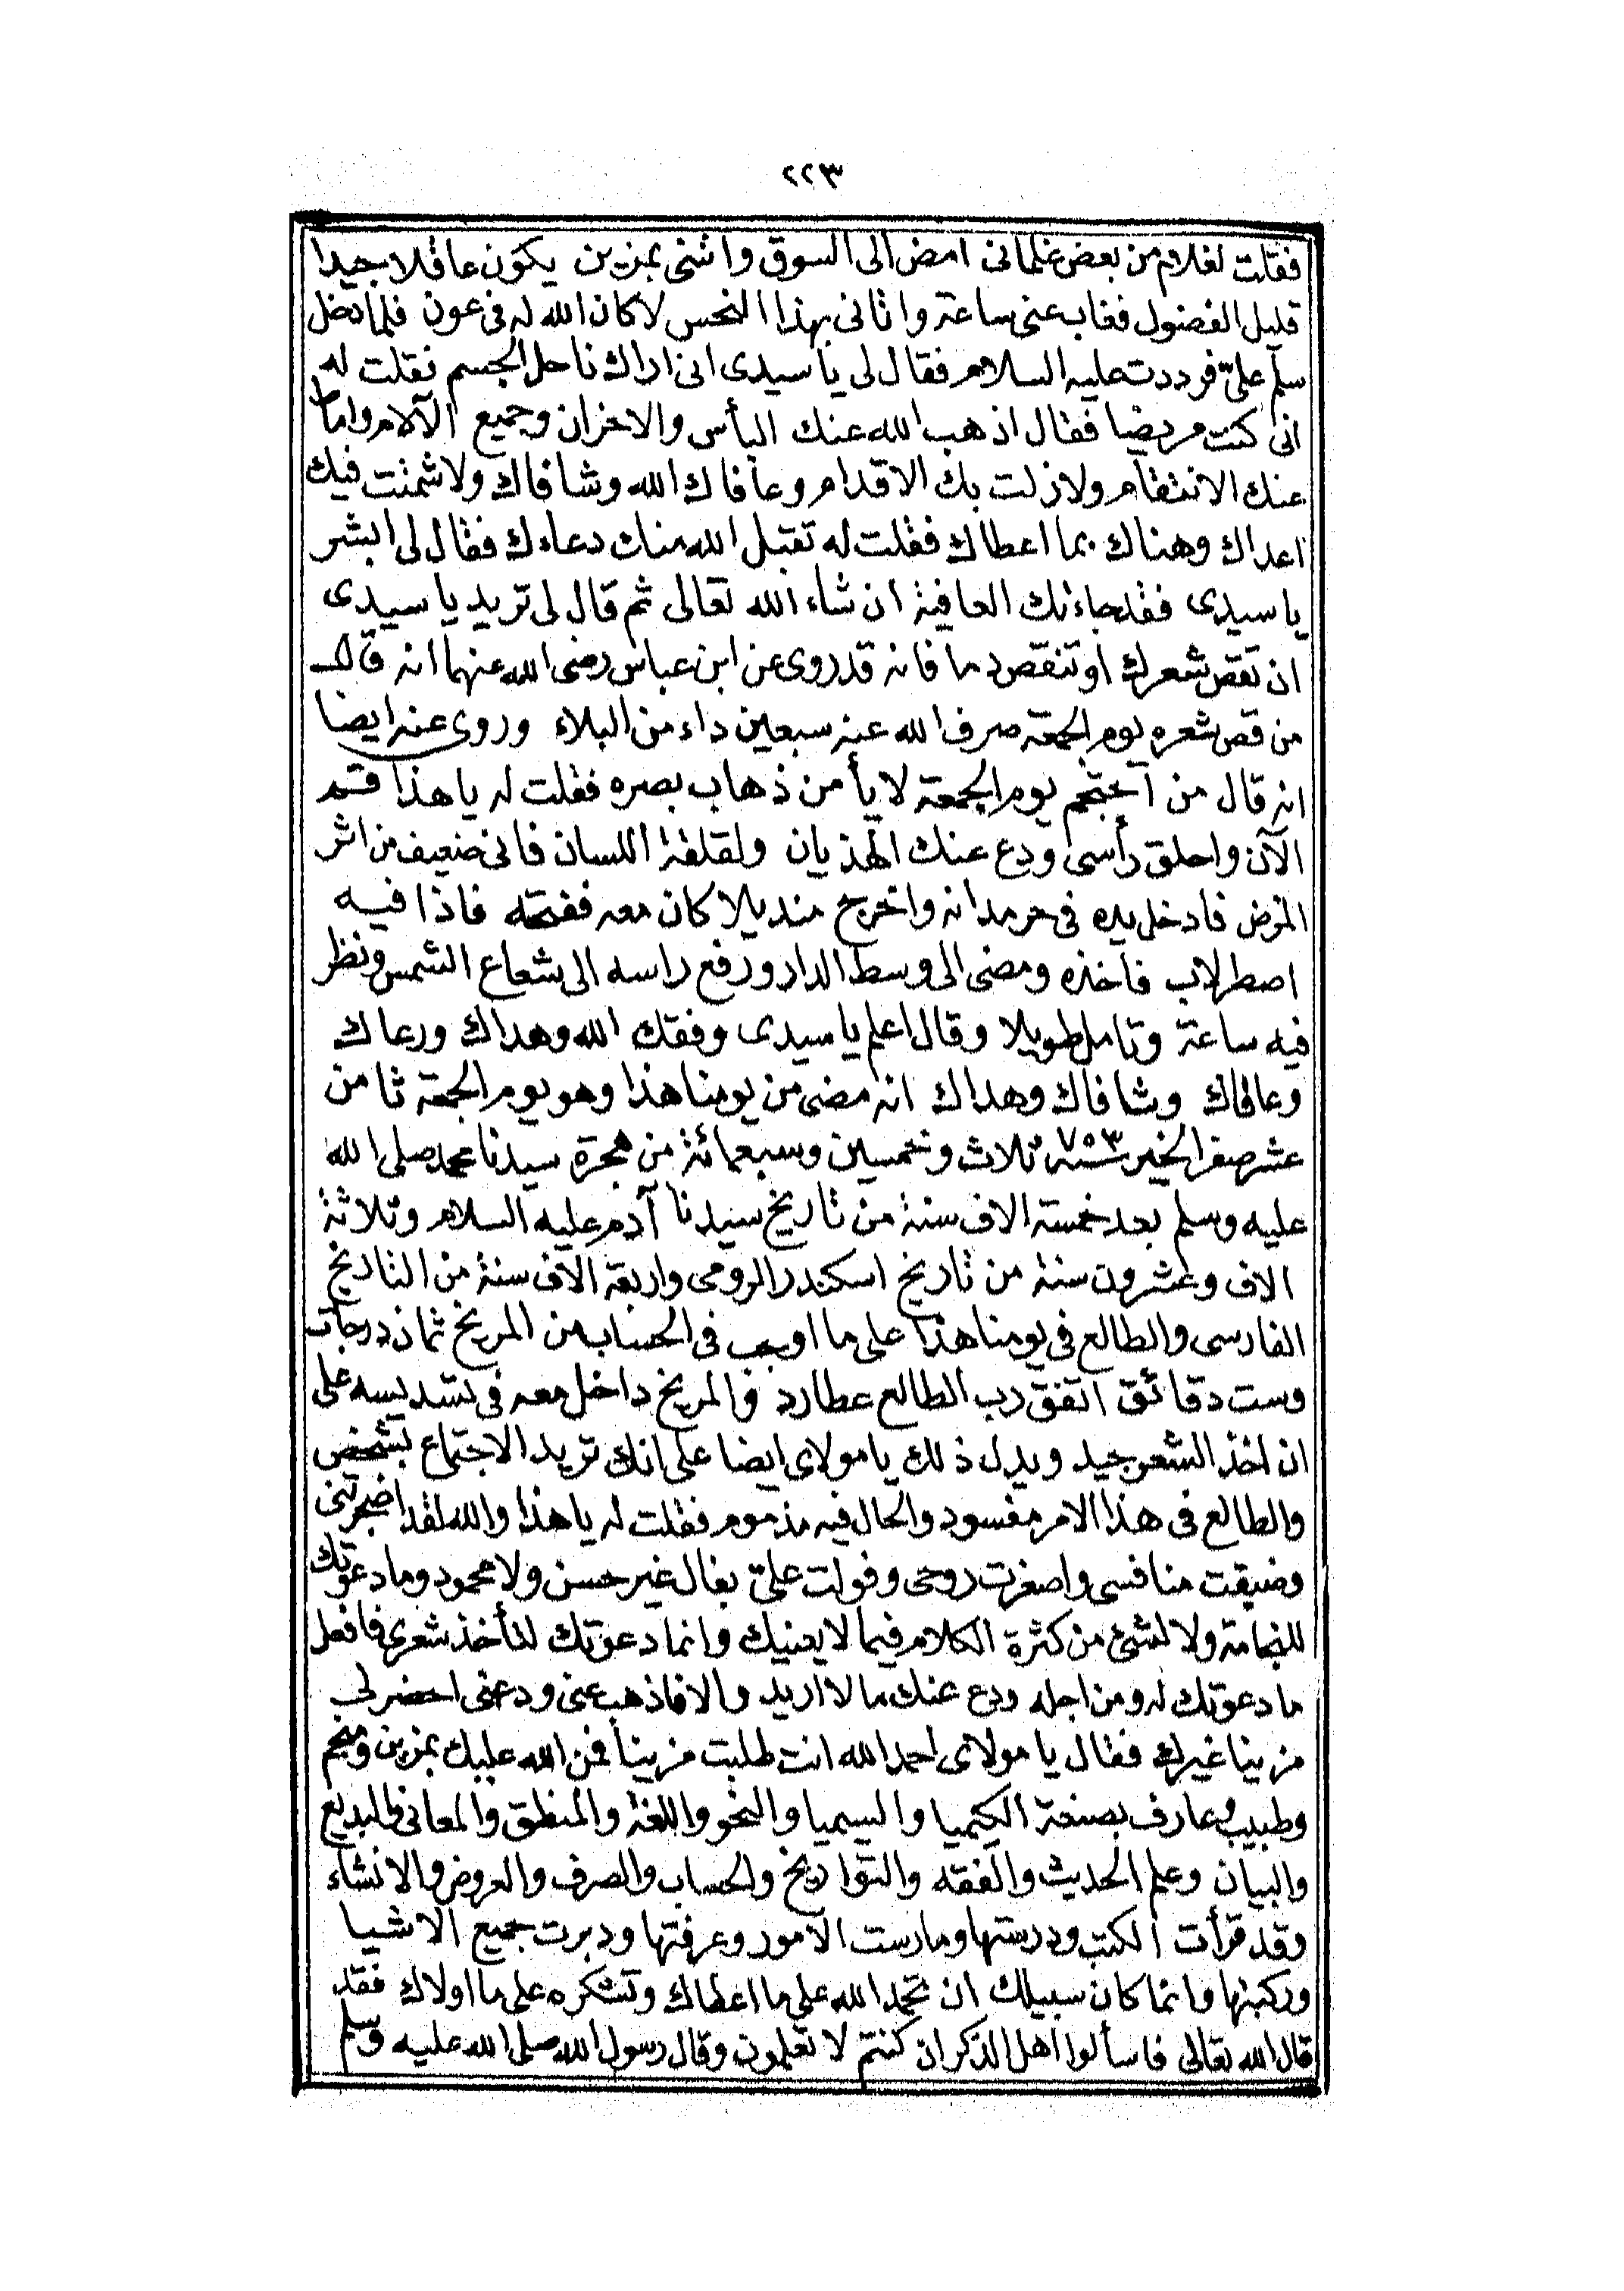 ٢٢٣
فقلت لغلام من بعض غلمانى امض الى السوق واتنى بمزين يكون عاقلا جيدا
قليل الفضول فغاب عنى ساعة واتانى بهذا النحس لا كان الله له فى عون فلما دخل
سلم علىّ فرددت عليه السلام فقال لى يا سيدى انى اراك ناحل الجسم فقلت له
انى كنت مريضا فقال اذهب الله عنك البأس والاحزان وجميع الآلام واماط
عنك الانتقام ولا زلت بك الاقدام وعافاك الله وشافاك ولا شمتت فيك
اعداك وهناك بما اعطاك فقلت له تقبل الله منك دعاءك فقال لى ابشر
يا سيدى فقد جاءتك العافية ان شاء الله تعالى ثم قال لى تريد يا سيدى
ان تقص شعرك او تنقص دما فانه قد روى عن ابن عباس رضى الله عنهما انه قال
من قص شعره يوم الجمعة صرف الله عنه سبعين داء من البلاء وروى عنه ايضا
انه قال من احتجم يوم الجمعة لا يأمن ذهاب بصره فقلت له يا هذا قم
الآن واحلق رأسى ودع عنك الهذيان ولقلقة اللسان فانى ضعيف من اثر
المرض فادخل يده فى حرمدانه واخرج منديلا كان معه ففتحه فاذا فيه
اصطرلاب فاخذه ومضى الى وسط الدار ورفع راسه الى شعاع الشمس ونظر
فيه ساعة وتامل طويلا وقال اعلم يا سيدى وفقك الله وهداك ورعاك
وعافاك وشافاك وهداك انه مضى من يومنا هذا وهو يوم الجمعة ثامن
عشر صفر الخير سنة ٧٥٣ ثلاث وخمسين وسبعمائة من هجرة سيدنا محمد صلى الله
عليه وسلم بعد خمسة الاف سنة من تاريخ سيدنا آدم عليه السلام وثلاثة
الاف وعشرون سنة من تاريخ اسكندر الرومى واربعة الاف سنة من التاريخ
الفارسى والطالع فى يومنا هذا على ما اوجب فى الحساب من المريخ ثمان درجات
وست دقائق اتفق رب الطالع عطارد والمريخ داخل معه فى تسديسه على
ان اخذ الشعر جيد ويدل ذلك يا مولاى ايضا على انك تريد الاجتماع بشخص
والطالع فى هذا الامر مفسود والحال فيه مذموم فقلت له يا هذا والله لقد اضجرتنى
وضيقت منافسى واصغرت روحى وفولت علىّ بفال غير حسن ولا محمود وما دعوتك
للنجامة ولا لشئ من كثرة الكلام فيما لا يعنيك وانما دعوتك لتأخذ شعرى فافعل
ما دعوتك له ومن اجله ودع عنك ما لا اريد والا فاذهب عنى ودعنى احضر لى
مزينا غيرك فقال يا مولاى احمد الله انت طلبت مزينا فمن الله عليك بمزين ومنجم
وطبيب وعارف بصنعة الكيميا والسيميا والنحو واللغة والمنطق والمعانى والبديع
والبيان وعلم الحديث والفقه والتواريخ والحساب والصرف والعروض والانشاء
وقد قرأت الكتب ودرستها ومارست الامور وعرفتها ودبرت جميع الاشيا
وركبتها وانما كان سبيلك ان تحمد الله على ما اعطاك وتشكره على ما اولاك فقد
قال الله تعالى فاسألوا اهل الذكر ان كنتم لا تعلمون وقال رسول الله صلى الله عليه وسلم